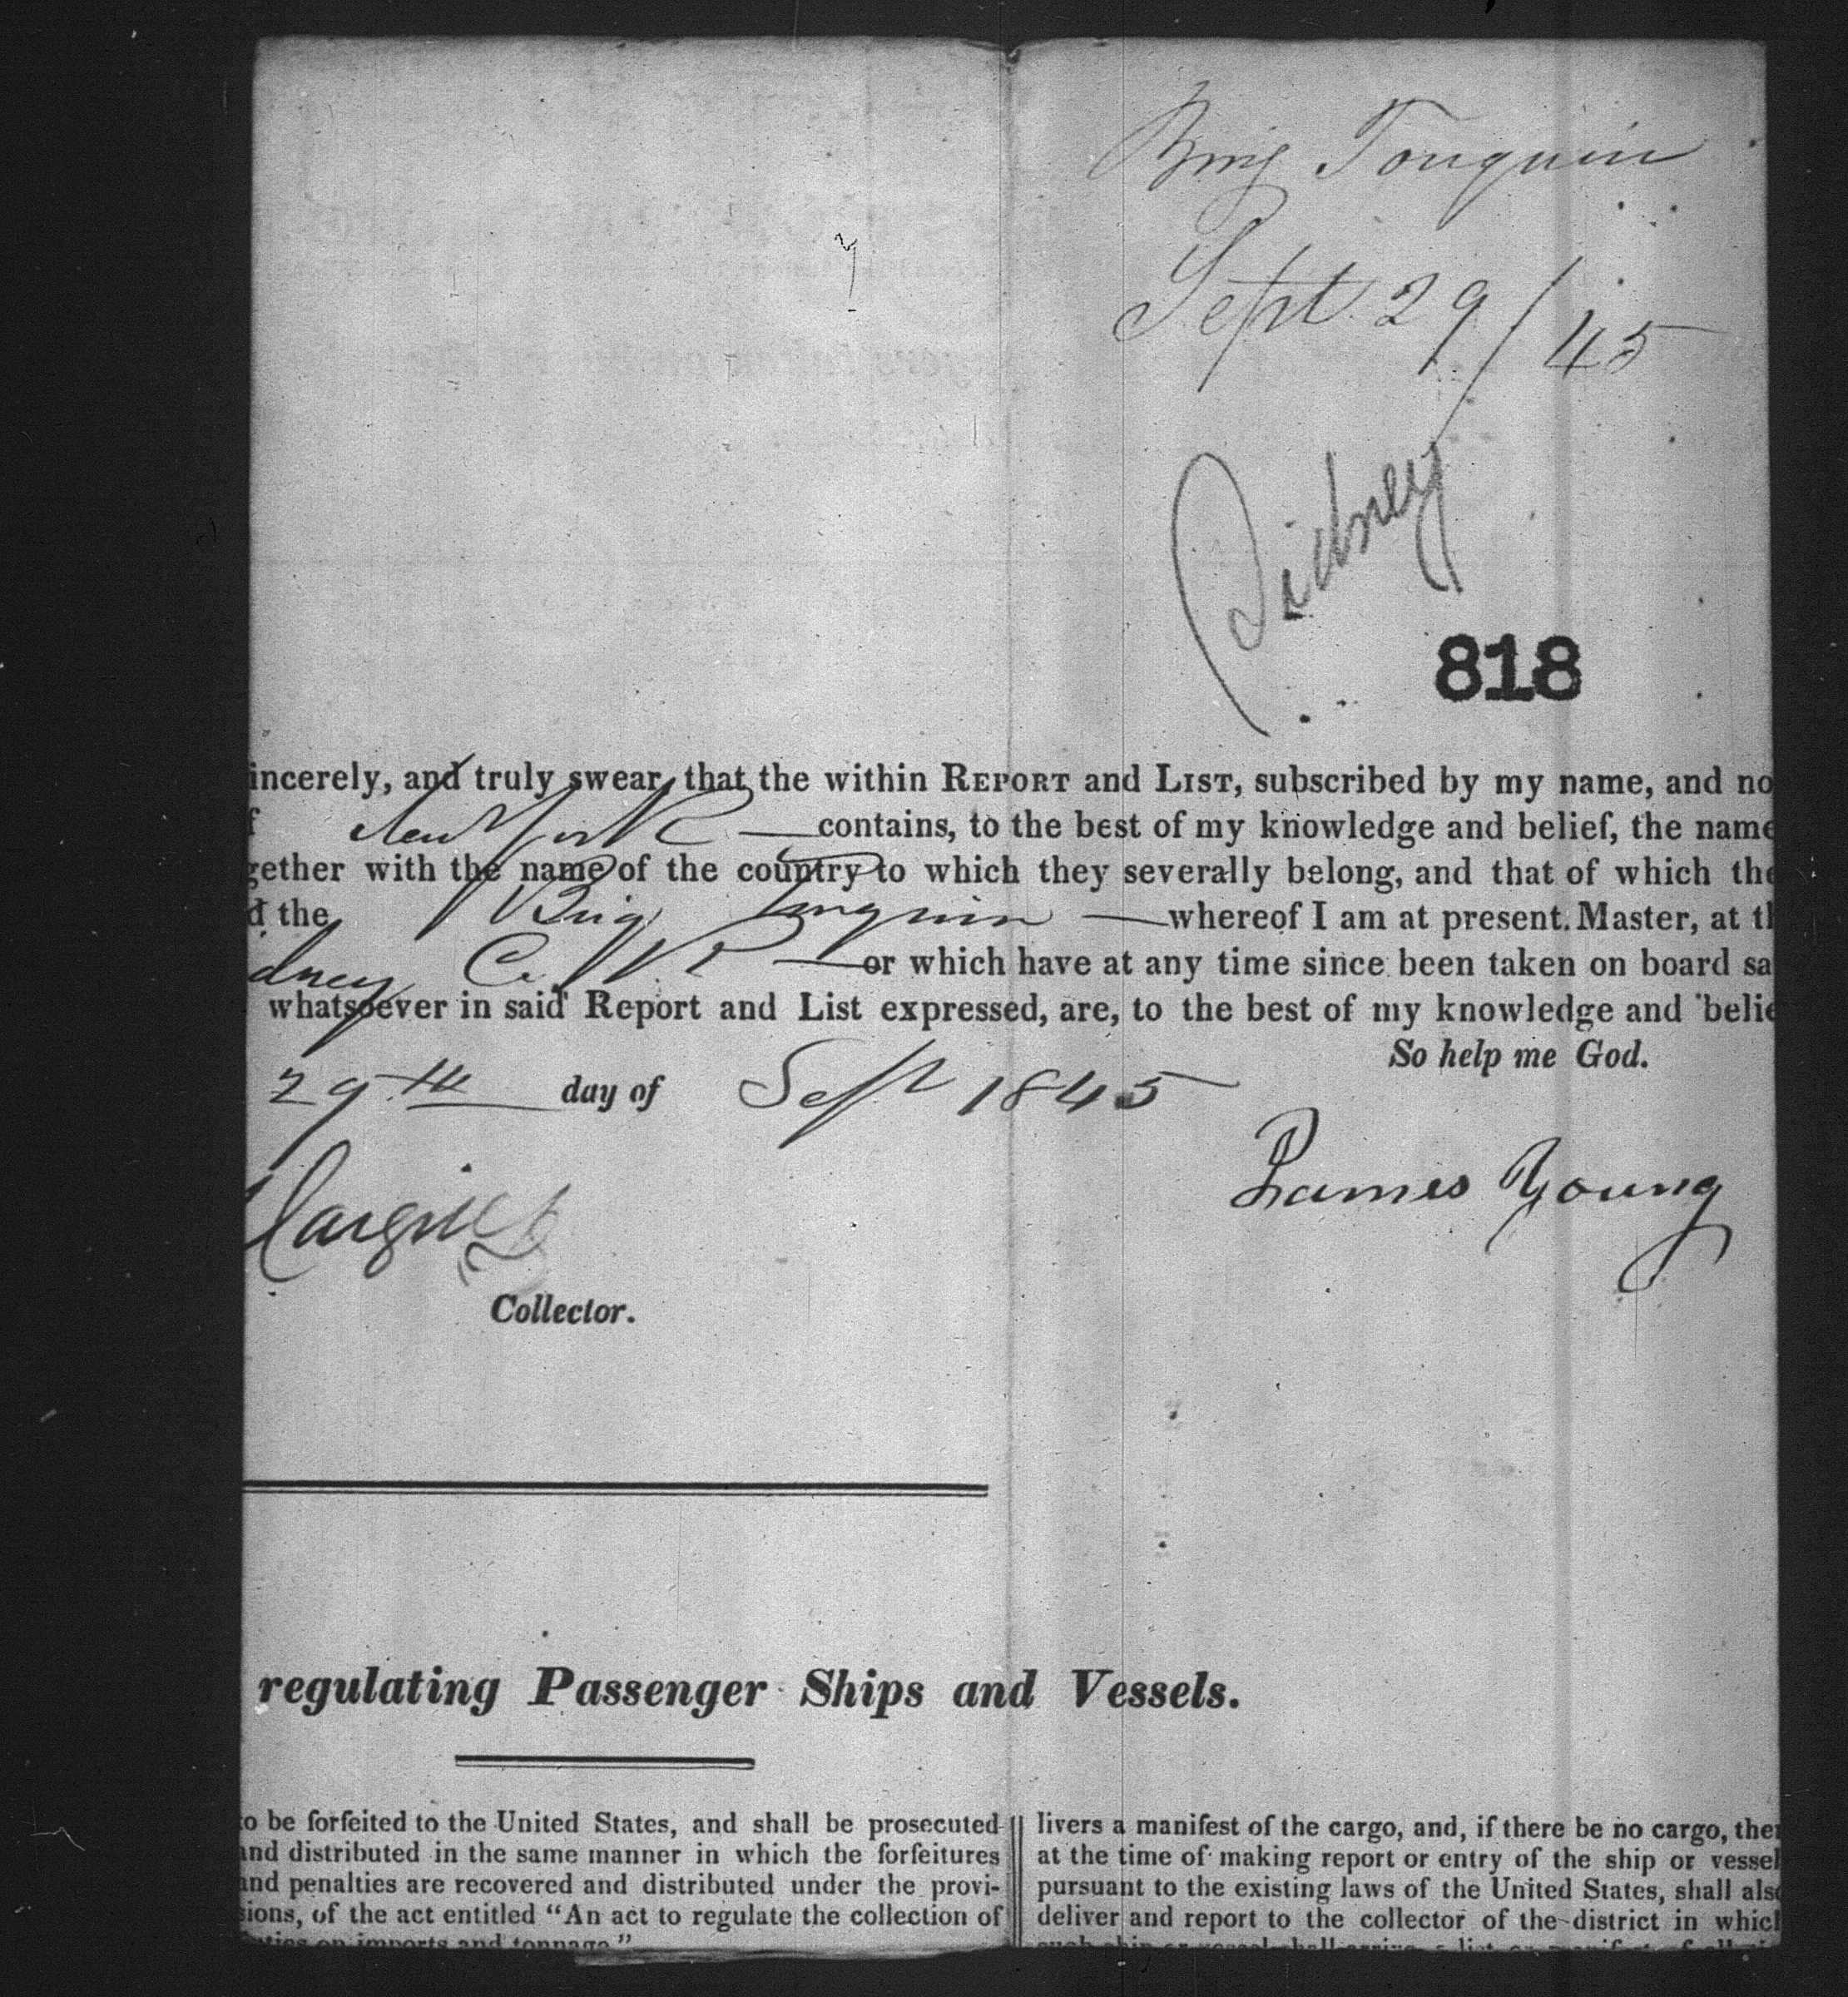 Brig Tonquin
Sept 29/45
Sidney
818
incerely, and truly swear, that the within REPORT and LIST, subscribed by my name, and no
f New York — contains, to the best of my knowledge and belief, the name
gether with the name of the country to which they severally belong, and that of which the
d the Brig Tonquin — whereof I am at present Master, at th
dney C. — or which have at any time since been taken on board sa
whatsoever in said Report and List expressed, are, to the best of my knowledge and belie
So help me God.
29th day of Sept 1845
James Young
Collector.
regulating Passenger Ships and Vessels.
to be forfeited to the United States, and shall be prosecuted
and distributed in the same manner in which the forfeitures
and penalties are recovered and distributed under the provi-
sions, of the act entitled “An act to regulate the collection of
duties on imports and tonnage.”
livers a manifest of the cargo, and, if there be no cargo, then
at the time of making report or entry of the ship or vessel
pursuant to the existing laws of the United States, shall also
deliver and report to the collector of the district in which
such ship or vessel shall arrive a list or manifest of all